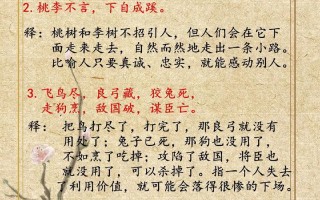 2.桃李不言，下自成蹊。
释：桃树和李树不招引人，但人们会在它下
面走来走去，自然而然地走出一条小路。
比喻人只要真诚、忠实，就能感动别人。
3.飞鸟尽，良弓藏，狡兔死，
走狗烹，敌国破，谋臣亡。
释：把鸟打尽了，打完了，那良弓就没有
用处了；兔子已死，那狗也没用了，
不如烹了吃掉；攻陷了敌国，将臣也
就没用了，可以杀掉了。指一个人失去
了利用价值，就可能会落得很惨的下场。